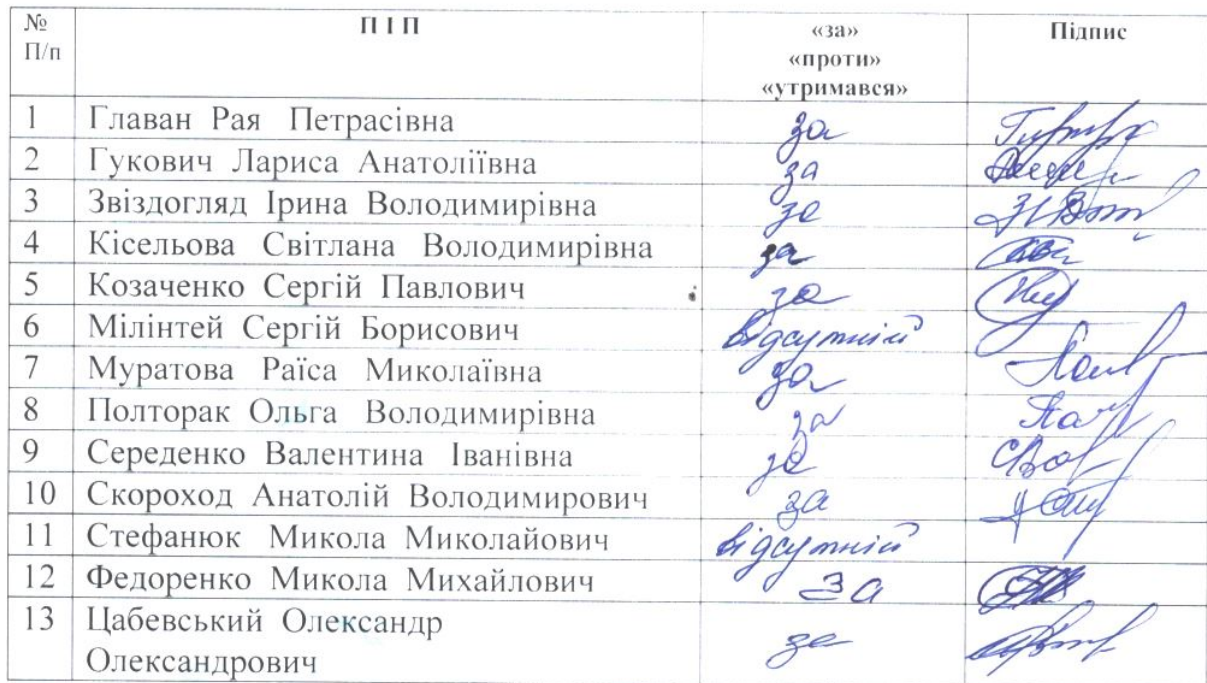 № П/п П І П «за» «проти» «утримався» Підпис
1 Главан Рая Петрасівна за
2 Гукович Лариса Анатоліївна за
3 Звіздогляд Ірина Володимирівна за
4 Кісельова Світлана Володимирівна за
5 Козаченко Сергій Павлович за
6 Мілінтей Сергій Борисович відсутній
7 Муратова Раїса Миколаївна за
8 Полторак Ольга Володимирівна за
9 Середенко Валентина Іванівна за
10 Скороход Анатолій Володимирович за
11 Стефанюк Микола Миколайович відсутній
12 Федоренко Микола Михайлович за
13 Цабевський Олександр
Олександрович за